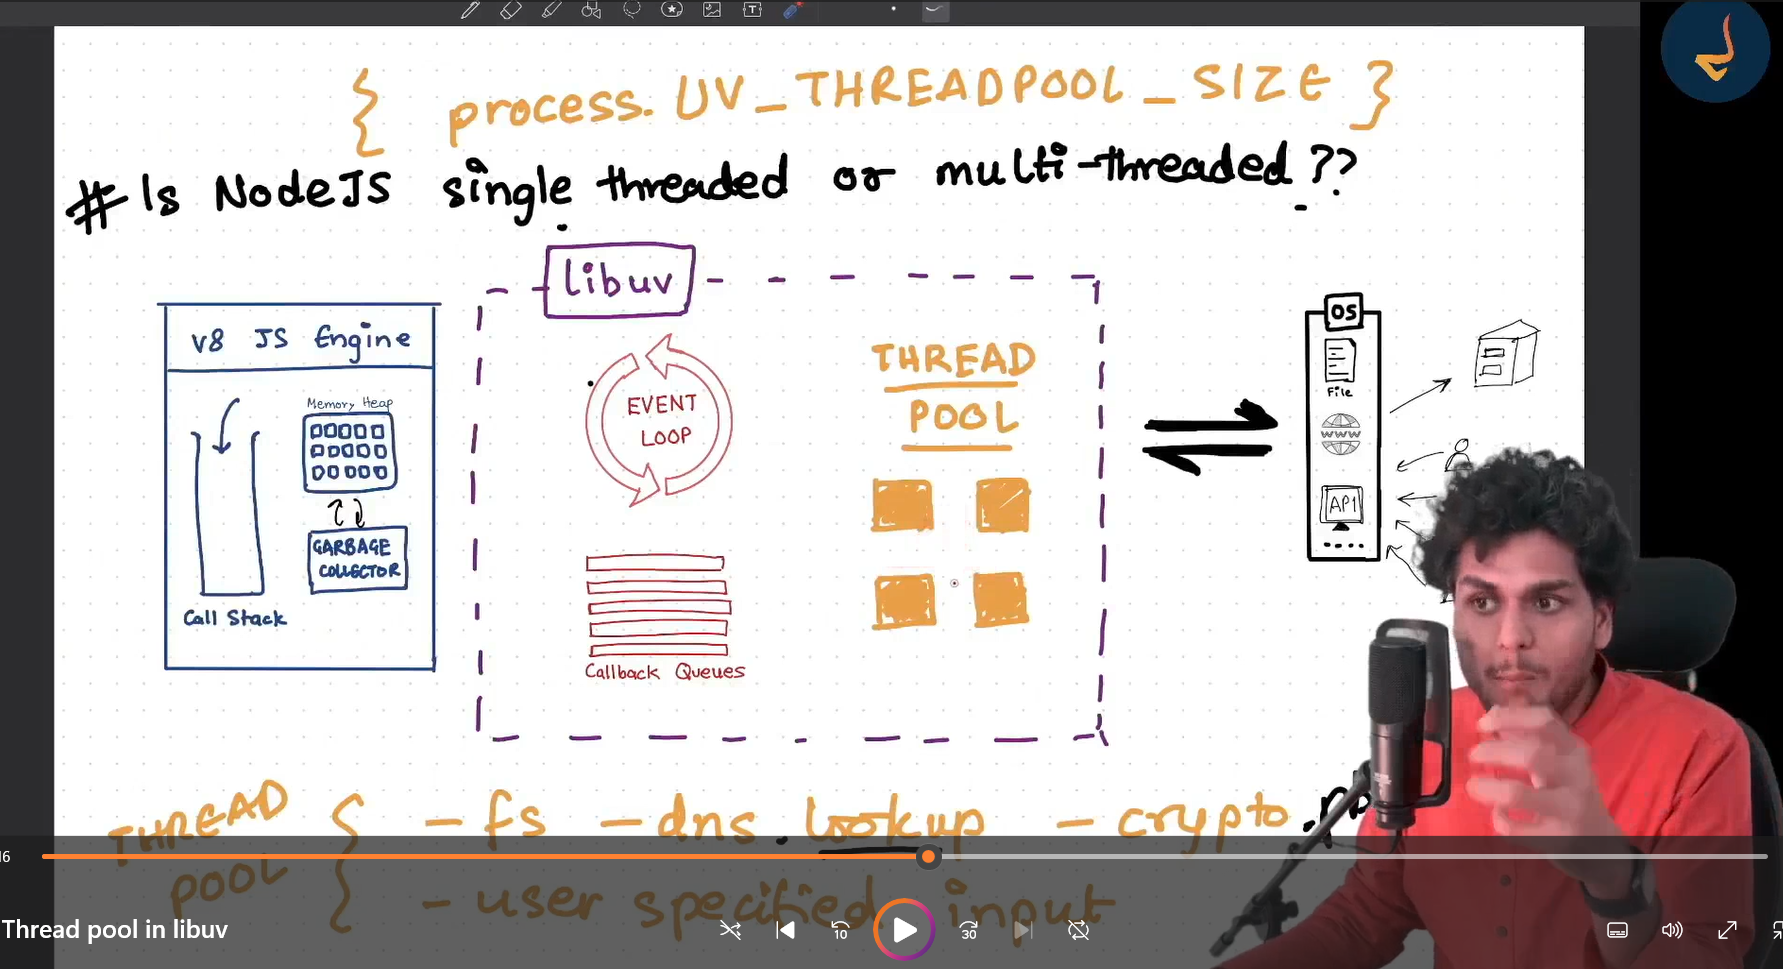 { process.UV_THREADPOOL_SIZE }
# Is NodeJS single threaded or multi-threaded ??
libuv
V8 JS Engine
Memory Heap
GARBAGE
COLLECTOR
Call Stack
EVENT
LOOP
Callback Queues
THREAD
POOL
OS
File
www
API
THREAD
POOL
{ - fs - dns.lookup - crypto.
- user specified input
16
Thread pool in libuv
10
30